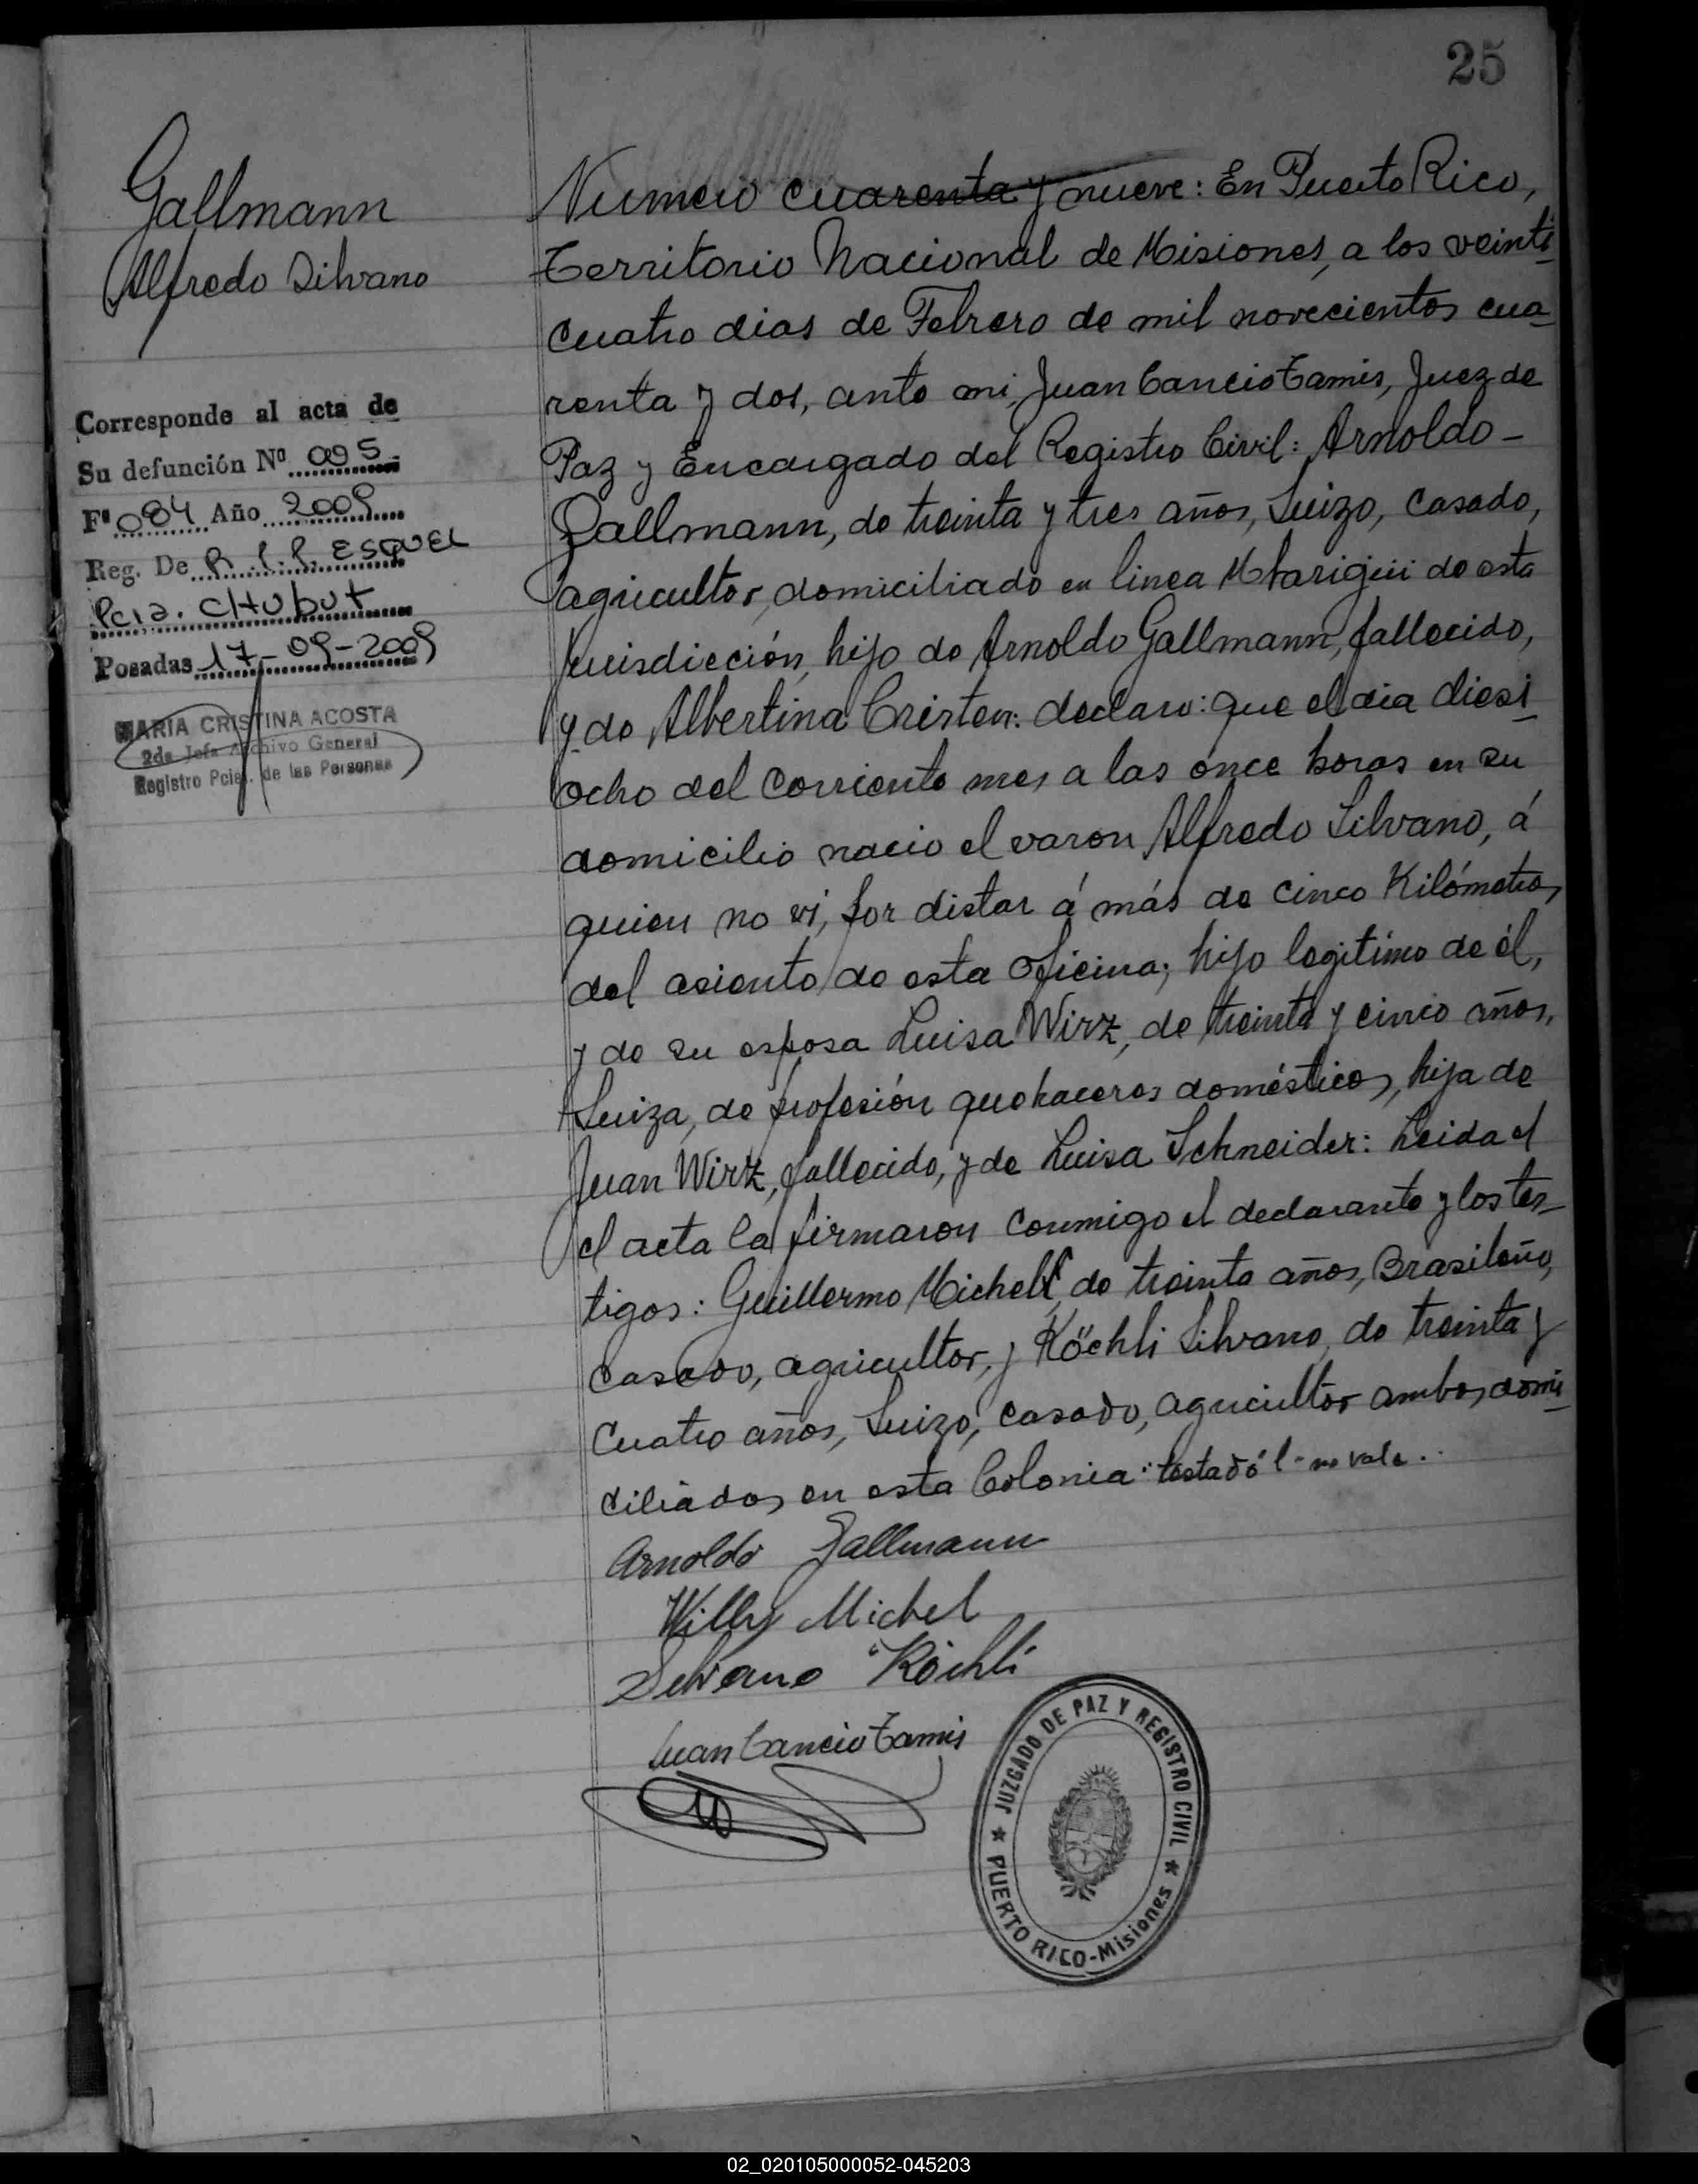 25
Gallmann
Alfredo Silvano
Corresponde al acta de
Su defunción Nº 095
Fº 084 Año 2009
Reg. De R.C.P. ESQUEL
Pcia. CHubut
Posadas 17-09-2009
MARIA CRISTINA ACOSTA
2da Jefa Archivo General
Registro Pcial. de las Personas
Numero cuarenta y nueve: En Puerto Rico,
Territorio Nacional de Misiones, a los veinti
cuatro dias de Febrero de mil novecientos cua
renta y dos, ante mi, Juan Cancio Tamis, Juez de
Paz y Encargado del Registro Civil: Arnoldo -
Gallmann, de treinta y tres años, Suizo, casado,
agricultor, domiciliado en linea Mbarigüi de esta
Jurisdicción, hijo de Arnoldo Gallmann, fallecido,
y de Albertina Cristen: declaro: que el dia diesi
ocho del corriente mes a las once horas en su
domicilio nacio el varon Alfredo Silvano, á
quien no vi, por distar á más de cinco Kilómetros
del asiento de esta oficina; hijo legitimo de él,
y de su esposa Luisa Wirz, de treinta y cinco años,
Suiza, de profesión quehaceres domésticos, hija de
Juan Wirz, fallecido, y de Luisa Schneider: Leida el
el acta la firmaron conmigo el declarante y los tes-
tigos: Guillermo Michell, de treinta años, Brasileño,
casado, agricultor, y Köchli Silvano, de treinta y
cuatro años, Suizo, casado, agricultor ambos domi
ciliados en esta Colonia: testado "l" no vale.
Arnoldo Gallmann
Willy Michel
Silvano Köchli
Juan Cancio Tamis
JUZGADO DE PAZ Y REGISTRO CIVIL
PUERTO RICO-Misiones
02_020105000052-045203